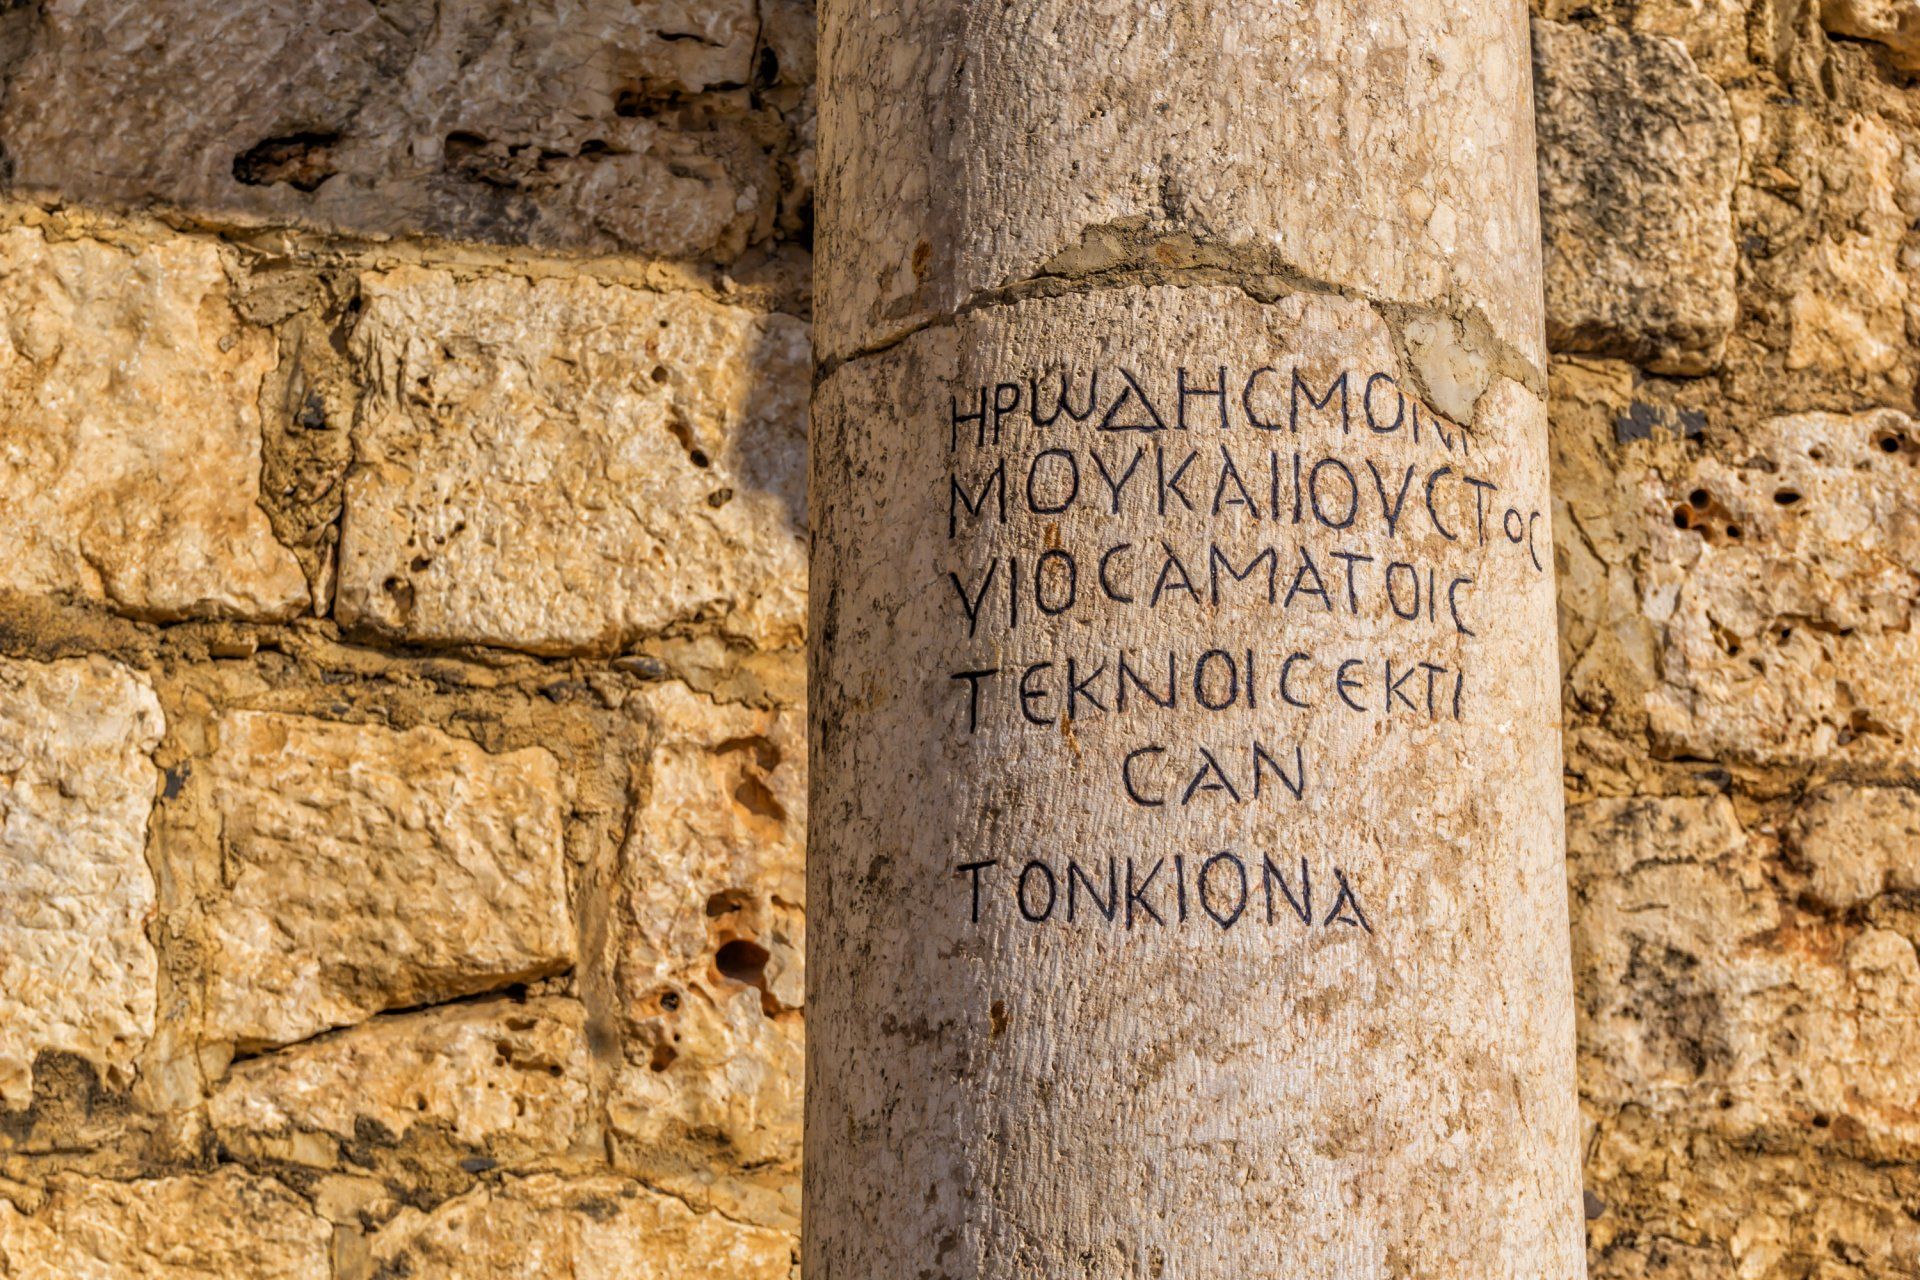 ΗΡѠΔΗϹΜΟΝΙ
ΜΟΥΚΑΙΙΟΥϹΤΟϹ
ΥΙΟϹΑΜΑΤΟΙϹ
ΤΕΚΝΟΙϹΕΚΤΙ
ϹΑΝ
ΤΟΝΚΙΟΝΑ